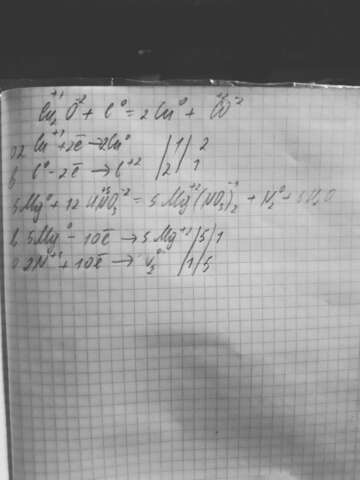 Cu₂⁺¹O⁻² + C⁰ = 2Cu⁰ + C⁺²O⁻²
o 2Cu⁺¹ + 2ē → 2Cu⁰ | 1 | 2
в C⁰ - 2ē → C⁺² | 2 | 1
5Mg⁰ + 12HN⁺⁵O₃⁻² = 5Mg⁺²(NO₃)₂⁻¹ + N₂⁰ + 6H₂O
в 5Mg⁰ - 10ē → 5Mg⁺² | 5 | 1
o 2N⁺⁵ + 10ē → N₂⁰ | 1 | 5